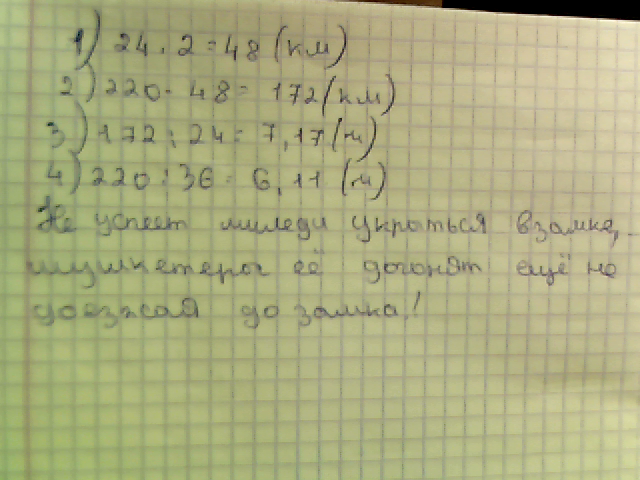 1) 24 · 2 = 48 (км)
2) 220 - 48 = 172 (км)
3) 172 : 24 = 7,17 (ч)
4) 220 : 36 = 6,11 (ч)
Не успеет миледи укрыться в замке,
мушкетеры её догонят ещё не
доезжая до замка!